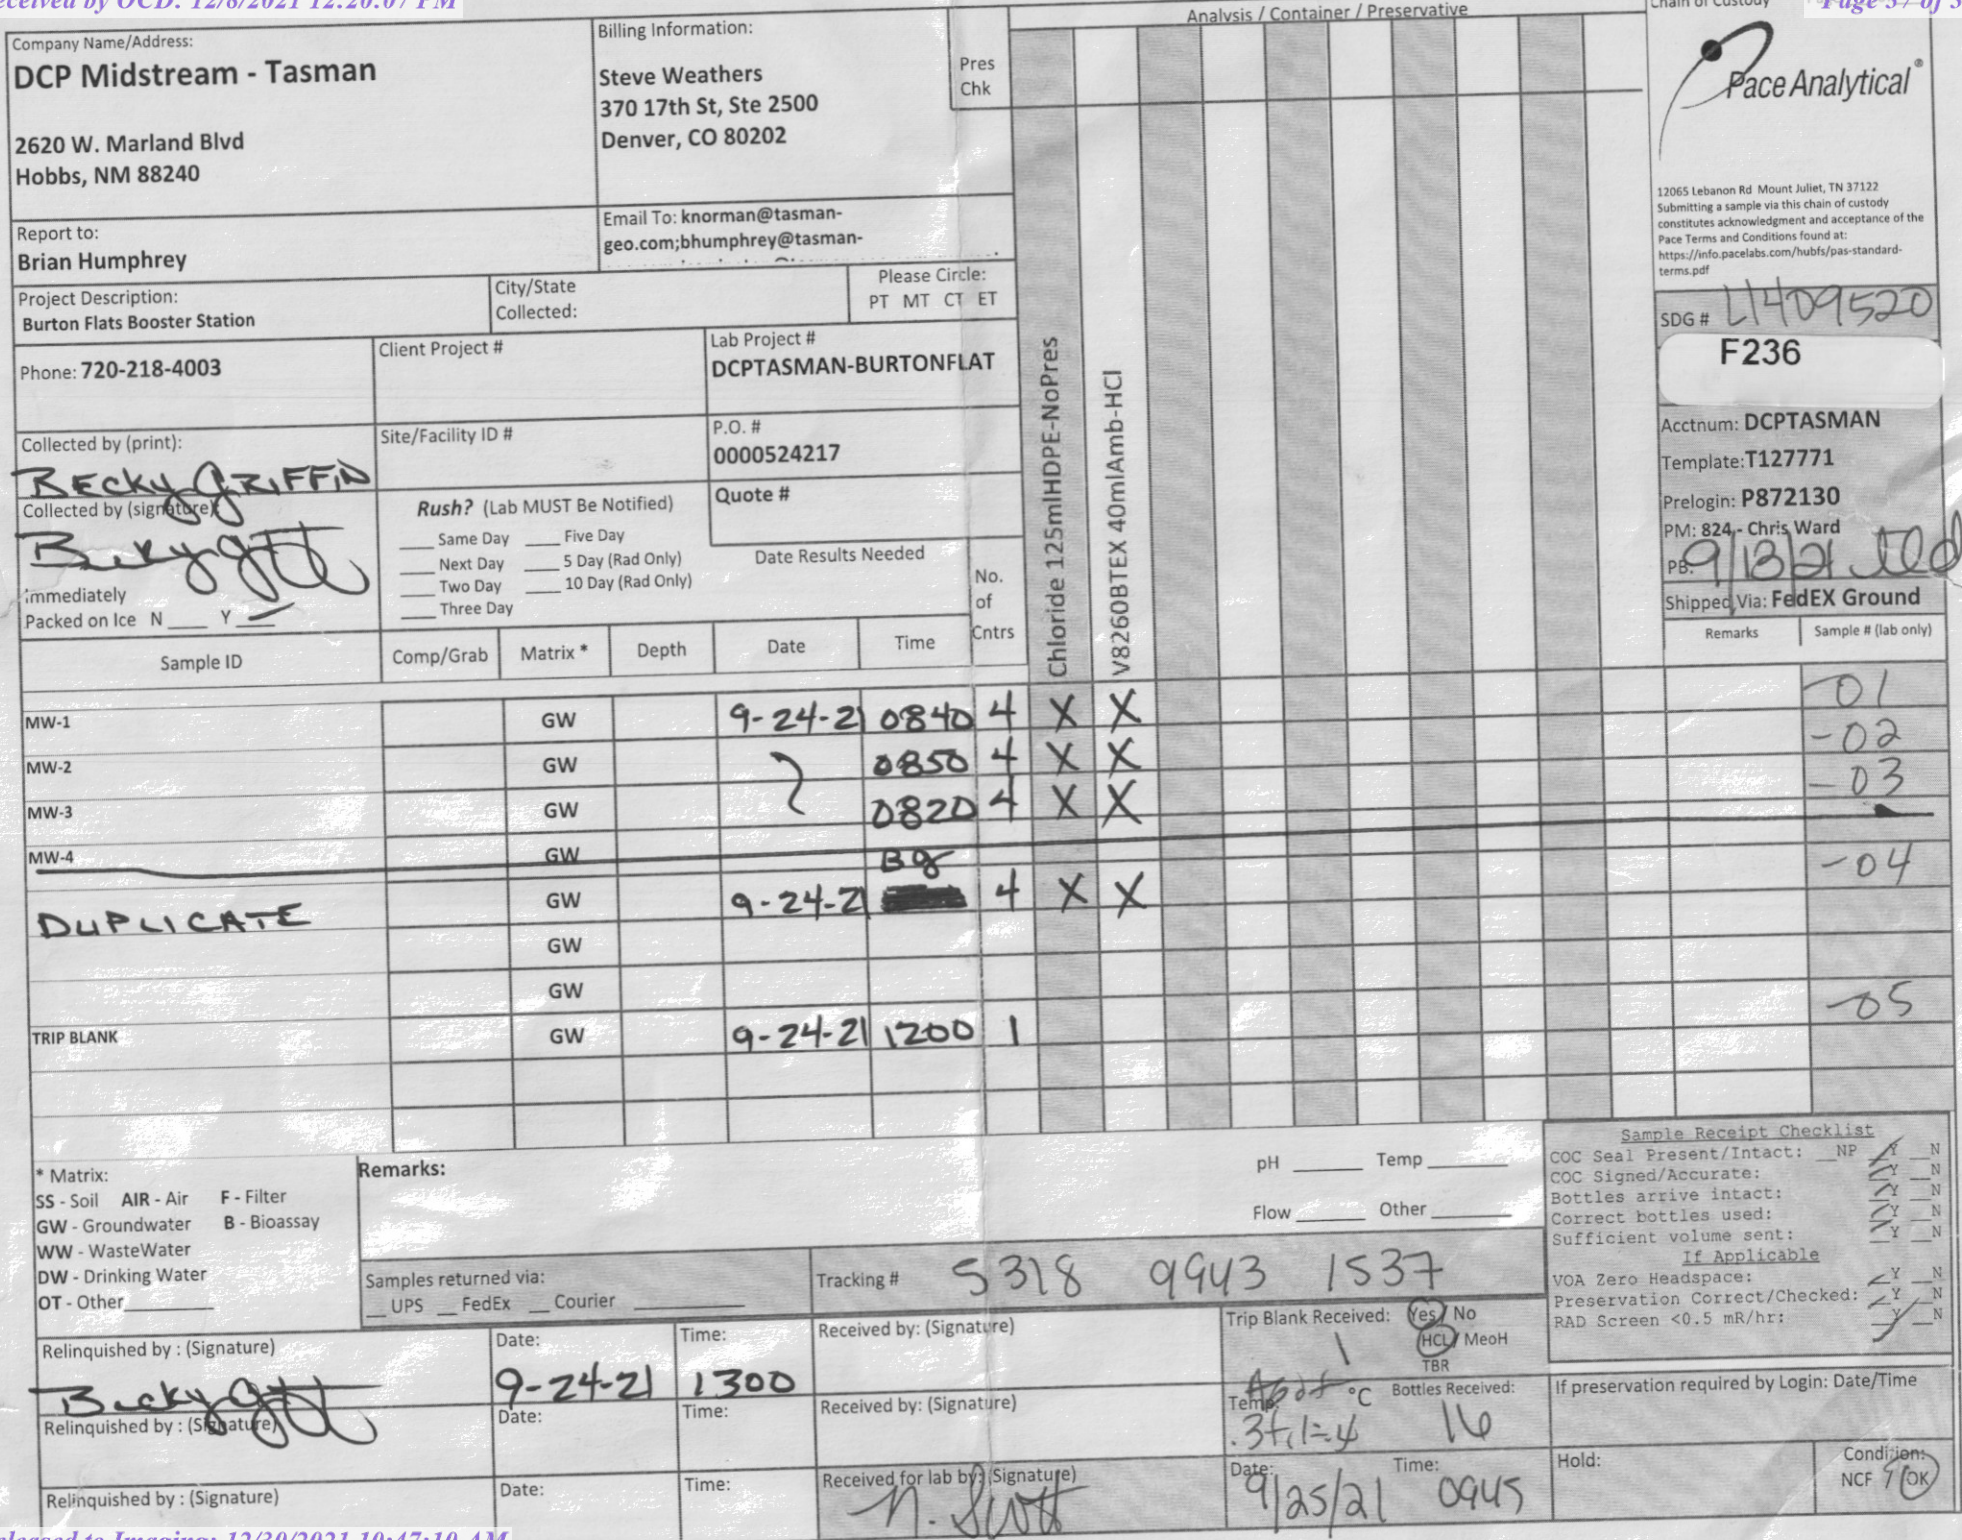 eceived by OCD: 12/8/2021 12:20:07 PM
Page 37 of 3
Company Name/Address:
DCP Midstream - Tasman
2620 W. Marland Blvd
Hobbs, NM 88240
Billing Information:
Steve Weathers
370 17th St, Ste 2500
Denver, CO 80202
Pres
Chk
Analysis / Container / Preservative
Chain of Custody
Pace Analytical®
12065 Lebanon Rd Mount Juliet, TN 37122
Submitting a sample via this chain of custody
constitutes acknowledgment and acceptance of the
Pace Terms and Conditions found at:
https://info.pacelabs.com/hubfs/pas-standard-
terms.pdf
Report to:
Brian Humphrey
Email To: knorman@tasman-
geo.com;bhumphrey@tasman-
Project Description:
Burton Flats Booster Station
City/State
Collected:
Please Circle:
PT MT CT ET
SDG # L1409520
F236
Phone: 720-218-4003
Client Project #
Lab Project #
DCPTASMAN-BURTONFLAT
Chloride 125mlHDPE-NoPres
V8260BTEX 40mlAmb-HCl
Collected by (print):
BECKY GRIFFIN
Site/Facility ID #
P.O. #
0000524217
Acctnum: DCPTASMAN
Template: T127771
Prelogin: P872130
PM: 824 - Chris Ward
PB: 9/13/21
Shipped Via: FedEX Ground
Collected by (signature):
Rush? (Lab MUST Be Notified)
Quote #
___ Same Day ___ Five Day
___ Next Day ___ 5 Day (Rad Only)
___ Two Day ___ 10 Day (Rad Only)
___ Three Day
Date Results Needed
Immediately
Packed on Ice N ___ Y ___
No.
of
Cntrs
Sample ID Comp/Grab Matrix * Depth Date Time Remarks Sample # (lab only)
MW-1 GW 9-24-21 0840 4 X X -01
MW-2 GW 0850 4 X X -02
MW-3 GW 0820 4 X X -03
MW-4 GW
Bg
DUPLICATE GW 9-24-21 4 X X -04
GW
GW
TRIP BLANK GW 9-24-21 1200 1 -05
* Matrix:
SS - Soil AIR - Air F - Filter
GW - Groundwater B - Bioassay
WW - WasteWater
DW - Drinking Water
OT - Other
Remarks:
pH ___ Temp ___
Flow ___ Other ___
Sample Receipt Checklist
COC Seal Present/Intact: __NP __Y __N
COC Signed/Accurate: __Y __N
Bottles arrive intact: __Y __N
Correct bottles used: __Y __N
Sufficient volume sent: __Y __N
If Applicable
VOA Zero Headspace: __Y __N
Preservation Correct/Checked: __Y __N
RAD Screen <0.5 mR/hr: __Y __N
Samples returned via:
__ UPS __ FedEx __ Courier
Tracking # 5318 9943 1537
Relinquished by : (Signature)
Date: 9-24-21
Time: 1300
Received by: (Signature)
Trip Blank Received: Yes / No
1
HCL / MeoH
TBR
Relinquished by : (Signature)
Date:
Time:
Received by: (Signature)
Temp: °C
.3+.1=.4
Bottles Received:
16
If preservation required by Login: Date/Time
Relinquished by : (Signature)
Date:
Time:
Received for lab by: (Signature)
N. Scott
Date: 9/25/21
Time: 0945
Hold:
Condition:
NCF / OK
eleased to Imaging: 12/30/2021 10:47:10 AM